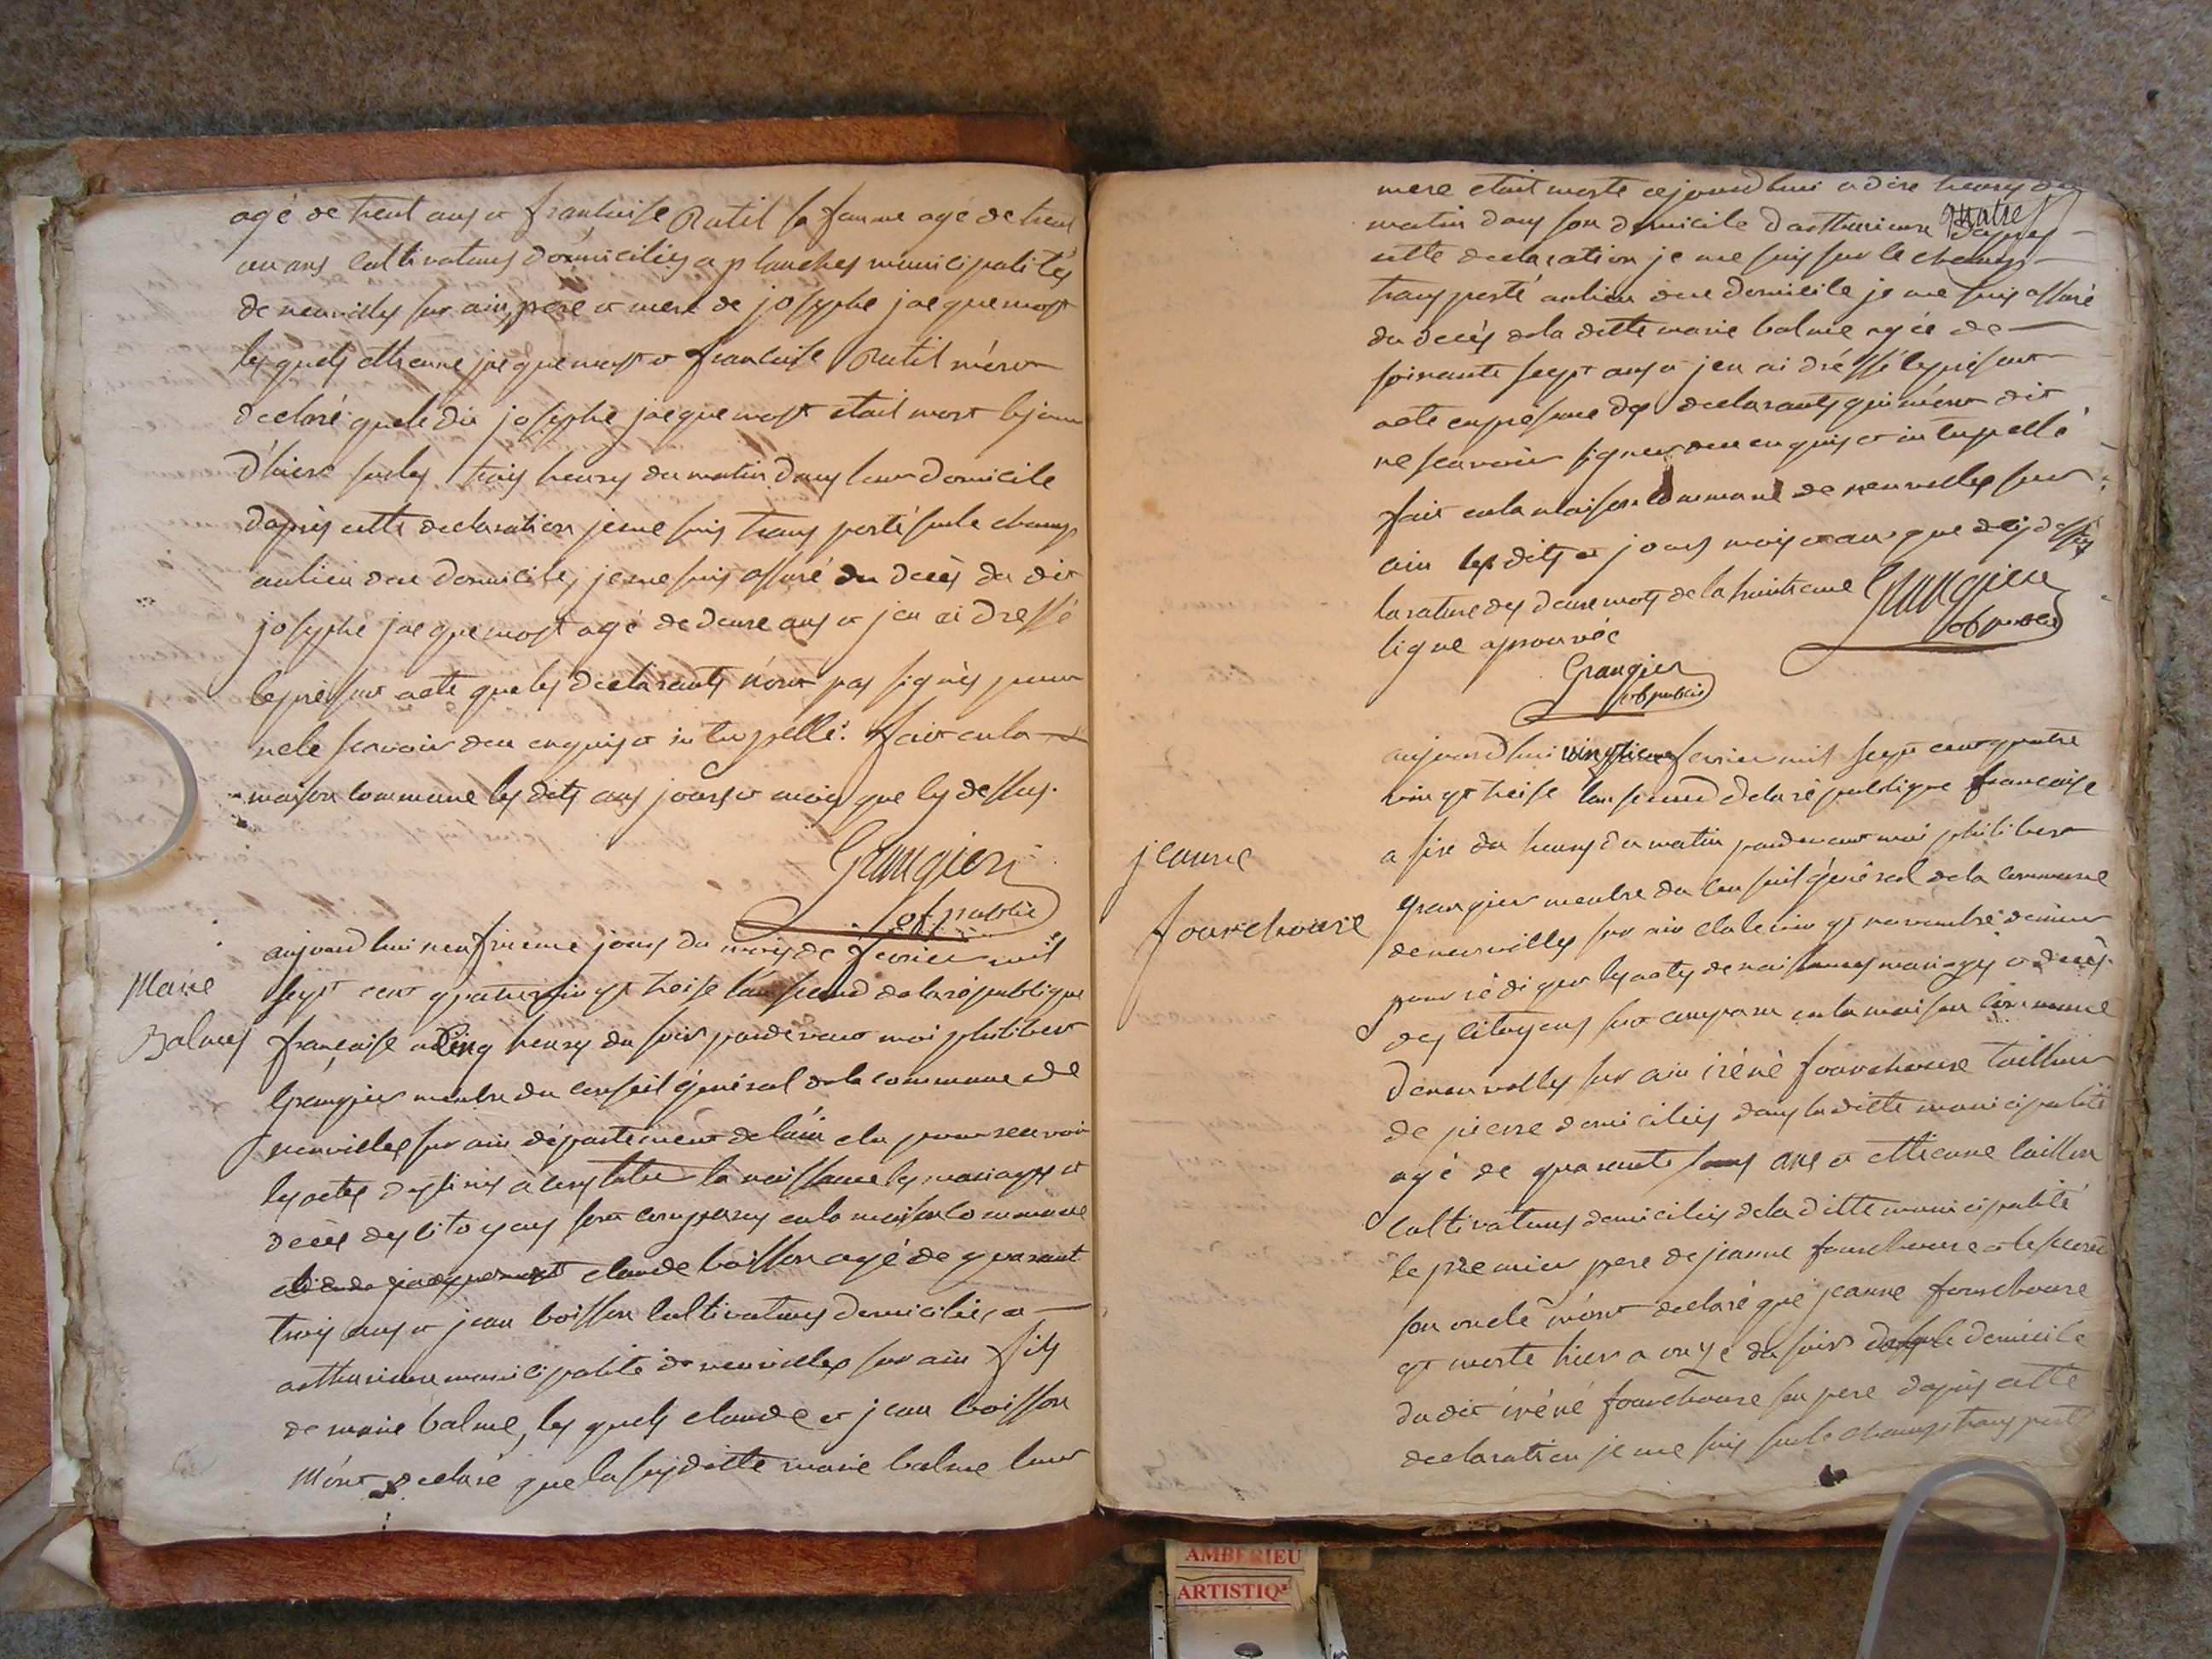 agé de trent ans et francoise Rutil sa femme agé de trent
un ans Cultivateurs domiciliés a planches municipalités
de neuville sur ain, pere et mere de josephe jacquemost
les quels ettienne jacquemost et francoise Rutil m'ont
declaré que le dit josephe jacquemost etait mort le jour
d'hier sur les trois heures du matin dans leur domicile
dapres cette declaration je me suis transporté sur le champ
au lieu de ce domicile, je me suis assuré du decès du dit
josephe jacquemost agé de deuse ans et j'en ai dressé
le présent acte que les déclarants n'ont pas signés pour
ne le scavoir de ce enquis et interpellé. fait en la
maison commune les dits ans jours et mois que les dessus.
Grangier
of public
Marie
Balmes
aujourdhui neufvieme jours du mois de fevrier mil
sept cent quatre vingt treise l'an second de la république
française a Cinq heures du soir pardevant moi philibert
Grangier membre du conseil général de la commune de
neuville sur ain département de l'ain elu pour recevoir
les actes destinés a constater la naissance les mariages et
decès des citoyens sont comparus en la maison commune
claude boisson agé de quarant
trois ans et jean boisson Cultivateurs domiciliés a
artheurieure municipalité de neuville sur ain fils
de marie balme, les quels claude et jean boisson
M'ont declaré que la susditte marie balme leur
quatre
mere etait morte cejourdhui a dixe heures du
matin dans son domicile dartheurieure dapres
cette declaration je me suis sur le champ
transporté au lieu de ce domicile je me suis assuré
du decès de la ditte marie balme agée de
soixante sept ans et j'en ai dréssé le présent
acte en présence des declarants qui m'ont dit
ne scavoir signer de ce enquis et interpellé
fait en la maison Commune de neuville sur
ain les dits et jours mois et an que dessus
la rature des deux mots de la huitieme
ligne aprouvée
Grangier
of public
Grangier
of public
jeanne
fourchouse
aujourdhui vingtieme fevrier mil sept cent quatre
vingt treise l'an second de la république francaise
a sixe du heures du matin pardevant moi philibert
Grangier membre du conseil général de la commune
de neuville sur ain elu le vingt novembre dernier
pour rédiger les actes de naissances mariages et decès
des citoyens sont comparu en la maison Commune
de neuville sur ain iréné fourchouse tailleur
de pierre domiciliés dans la ditte municipalité
agé de quarante ans et ettienne
Cultivateurs domiciliés de la ditte municipalité
le premier pere de jeanne fourchouse et le second
son oncle m'ont declaré que jeanne fourchouse
est morte hier a onze du soir domicile
du dit iréné fourchouse son pere dapres cette
declaration je me suis sur le champ transporté
AMBERIEU
ARTISTIQ